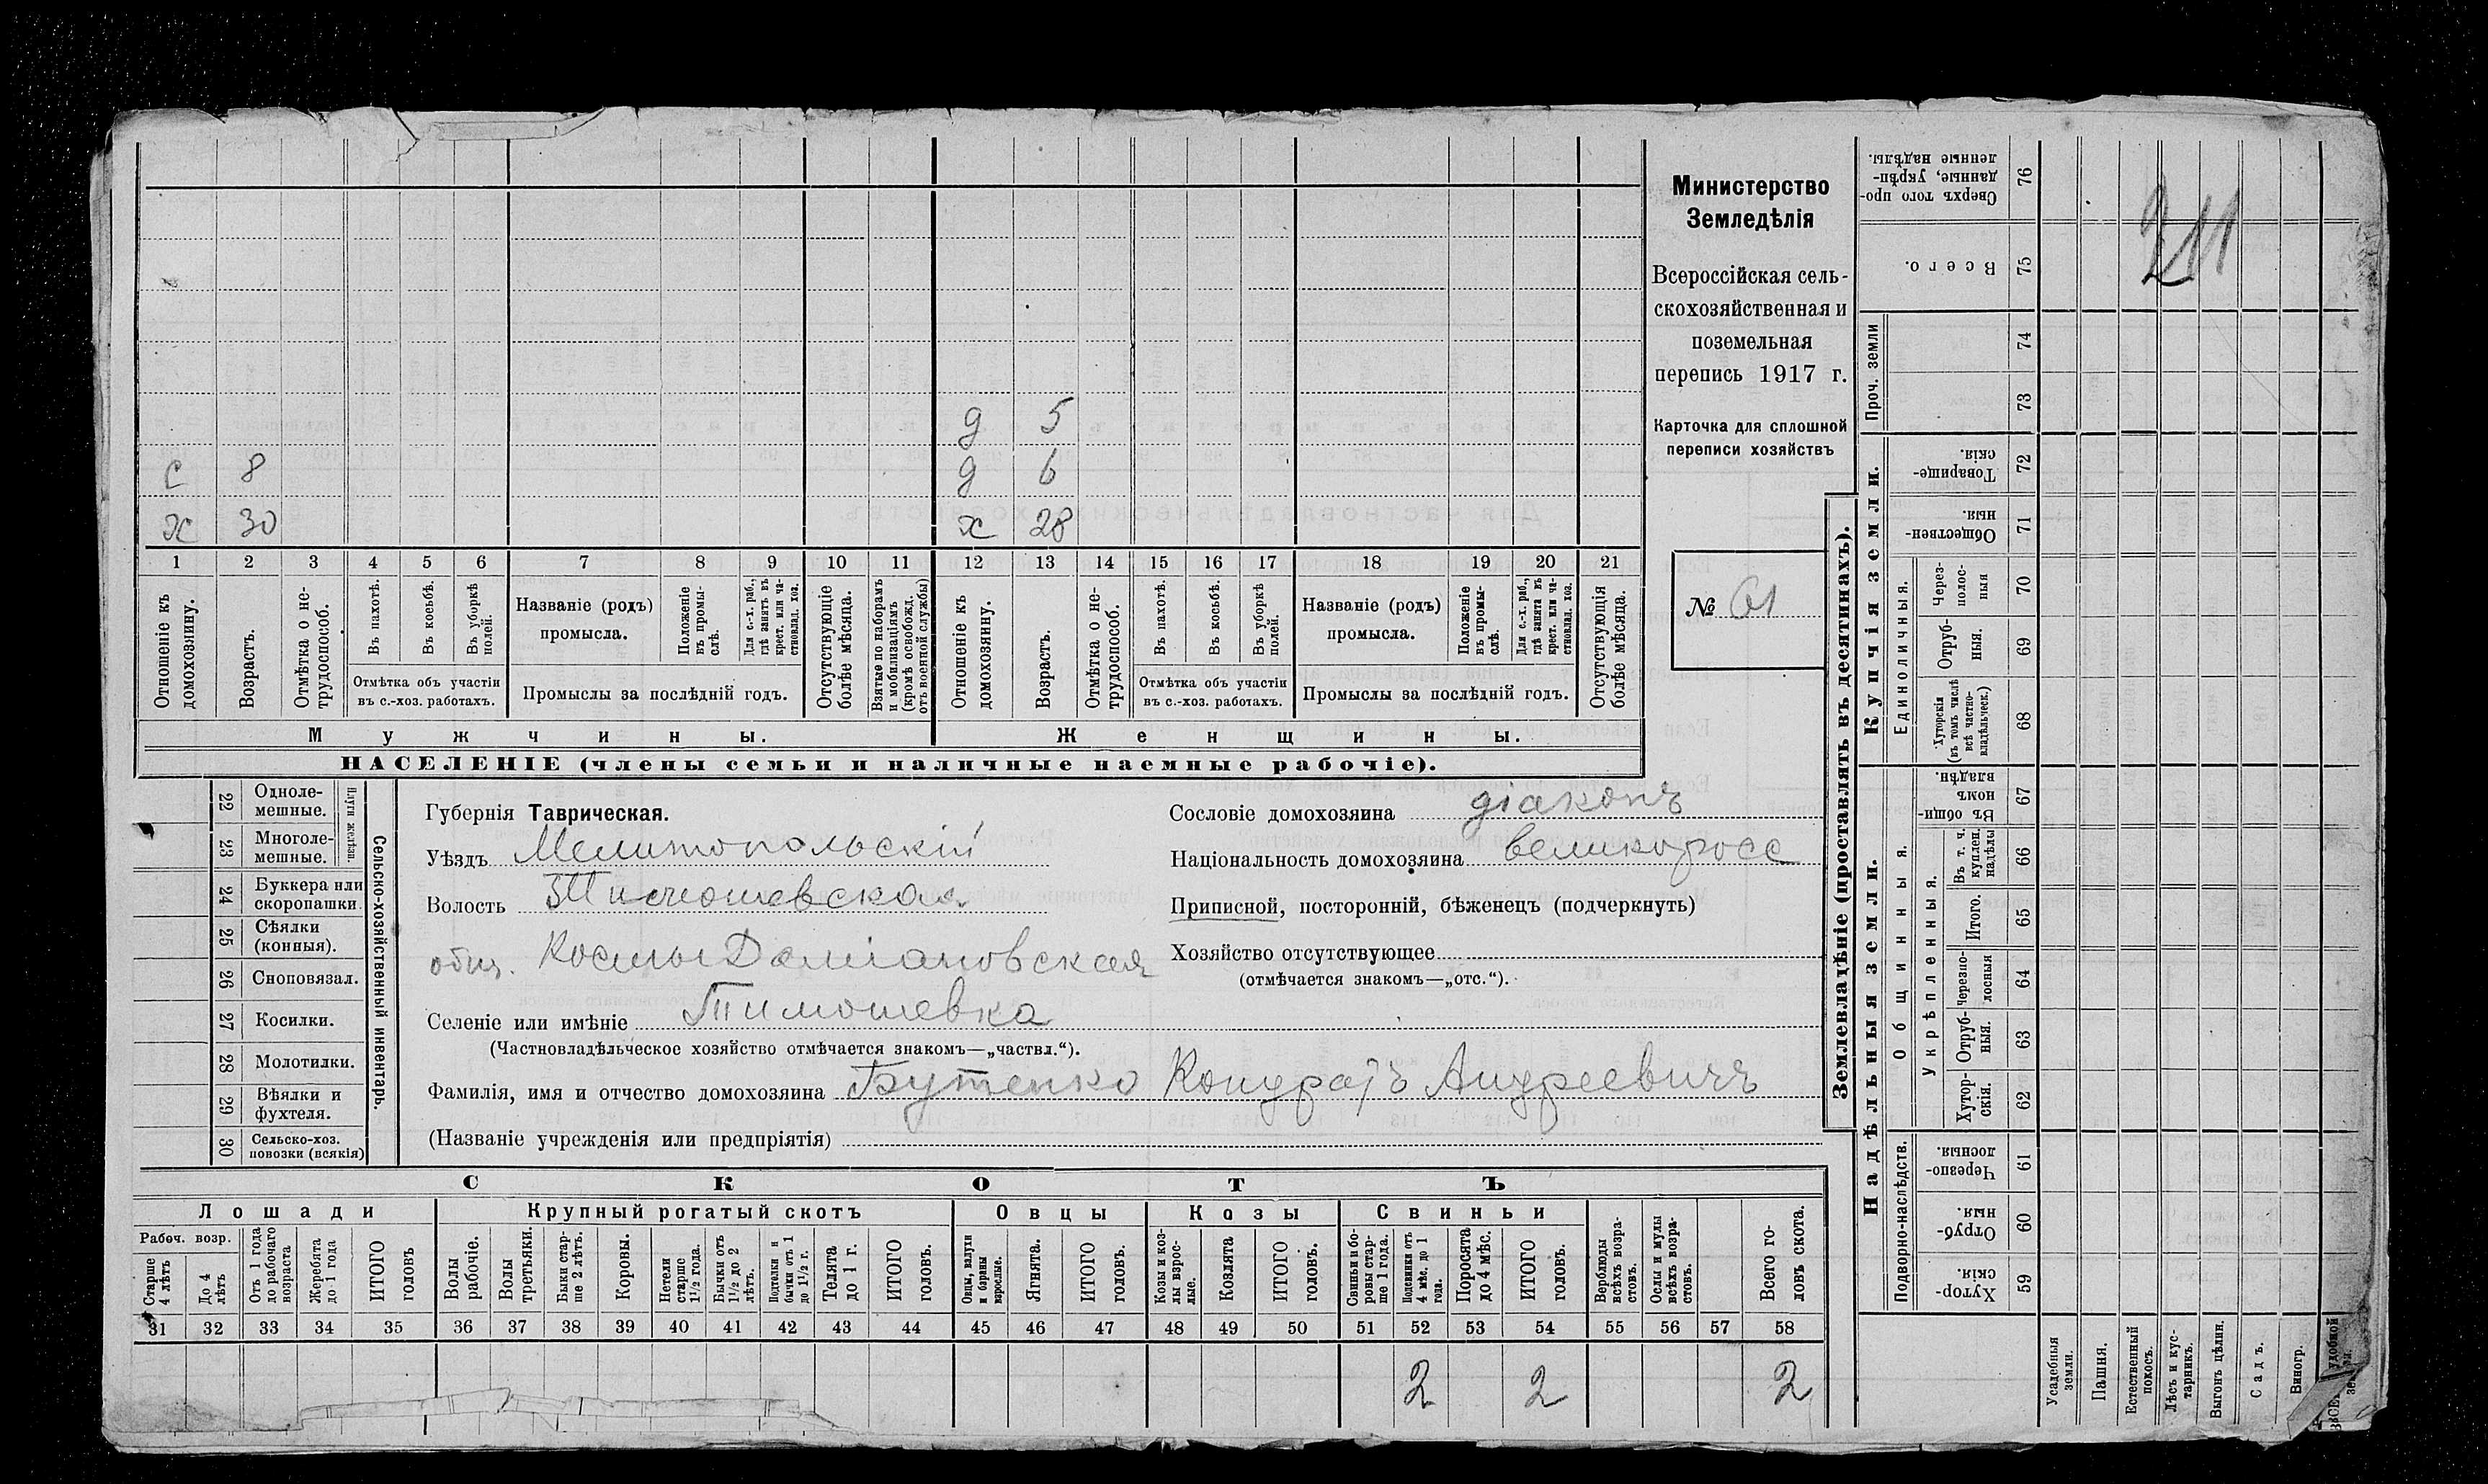 Министерство
Земледѣлія
Всероссійская сель-
скохозяйственная и
поземельная
перепись 1917 г.
Карточка для сплошной
переписи хозяйствъ
№ 61
211
д 5
с 8 д 6
х 30 х 28
1 2 3 4 5 6 7 8 9 10 11 12 13 14 15 16 17 18 19 20 21
Отношеніе къ домохозяину.
Возрастъ.
Отмѣтка о не-трудоспособ.
Въ пахотѣ.
Въ косьбѣ.
Въ уборкѣ полей.
Отмѣтка объ участіи
въ с.-хоз. работахъ.
Названіе (родъ)
промысла.
Положеніе въ промы-слѣ.
Для с.-х. раб., гдѣ занятъ въ крест. или ча-стновлад. хоз.
Промыслы за послѣдній годъ.
Отсутствующіе болѣе мѣсяца.
Взятые по наборамъ и мобилизаціямъ (кромѣ освобожд. отъ военной службы)
Отношеніе къ домохозяину.
Возрастъ.
Отмѣтка о не-трудоспособ.
Въ пахотѣ.
Въ косьбѣ.
Въ уборкѣ полей.
Отмѣтка объ участіи
въ с.-хоз. работахъ.
Названіе (родъ)
промысла.
Положеніе въ промы-слѣ.
Для с.-х. раб., гдѣ занята въ крест. или ча-стновлад. хоз.
Промыслы за послѣдній годъ.
Отсутствующія болѣе мѣсяца.
Мужчины. Женщины.
НАСЕЛЕНІЕ (члены семьи и наличные наемные рабочіе).
22 Одноле-мешные.
23 Многоле-мешные.
Плуги желѣзн.
24 Буккера или скоропашки.
25 Сѣялки (конныя).
26 Сноповязал.
27 Косилки.
28 Молотилки.
29 Вѣялки и фухтеля.
30 Сельско-хоз. повозки (всякія)
Сельско-хозяйственный инвентарь.
Губернія Таврическая.
Уѣздъ Мелитопольскій
Волость Тимошевская
общ. Космы Даміановская
Селеніе или имѣніе Тимошевка
(Частновладѣльческое хозяйство отмѣчается знакомъ—„частвл.“).
Фамилія, имя и отчество домохозяина Бутенко Кондратъ Андреевичъ
(Названіе учрежденія или предпріятія)
Сословіе домохозяина діаконъ
Національность домохозяина великоросс
Приписной, посторонній, бѣженецъ (подчеркнуть)
Хозяйство отсутствующее
(отмѣчается знакомъ—„отс.“).
СКОТЪ
Лошади Крупный рогатый скотъ Овцы Козы Свиньи
Рабоч. возр.
Старше 4 лѣтъ
До 4 лѣтъ
Отъ 1 года до рабочаго возраста
Жеребята до 1 года
ИТОГО головъ
Волы рабочіе.
Волы третьяки.
Быки стар-ше 2 лѣтъ.
Коровы.
Нетели старше 1½ года.
Бычки отъ 1½ до 2 лѣтъ.
Подтелки и бычки отъ 1 до 1½ г.
Телята до 1 г.
ИТОГО головъ.
Овцы, валухи и бараны взрослые.
Ягнята.
ИТОГО головъ.
Козы и коз-лы взрос-лые.
Козлята
ИТОГО головъ.
Свиньи и бо-ровы стар-ше 1 года.
Подсвинки отъ 4 мѣс. до 1 года.
Поросята до 4 мѣс.
ИТОГО головъ.
Верблюды всѣхъ возра-стовъ.
Ослы и мулы всѣхъ возра-стовъ.
Всего го-ловъ скота.
31 32 33 34 35 36 37 38 39 40 41 42 43 44 45 46 47 48 49 50 51 52 53 54 55 56 57 58
2 2 2
Землевладѣніе (проставлять въ десятинахъ).
Надѣльныя земли. Купчія земли. Проч. земли
Подворно-наслѣдств.
Общинныя.
Укрѣпленныя.
Единоличныя.
76 Сверхъ того про-данные, укрѣп-ленные надѣлы.
75 Всего.
74
73
72 Товарище-скія.
71 Обществен-ныя.
70 Через-полос-ныя
69 Отруб-ныя.
68 Хуторскія (въ томъ числѣ всѣ частно-владѣльческ.)
67 Въ общин-номъ владѣн.
66 Въ т. ч. куплен. надѣлы
65 Итого.
64 Черезпо-лосныя
63 Отруб-ныя.
62 Хутор-скія.
61 Черезпо-лосныя.
60 Отруб-ныя.
59 Хутор-скія.
Усадебныя земли.
Пашня.
Естественный покосъ.
Лѣсъ и кус-тарникъ.
Выгонъ цѣлин.
Садъ.
Виногр.
удобной